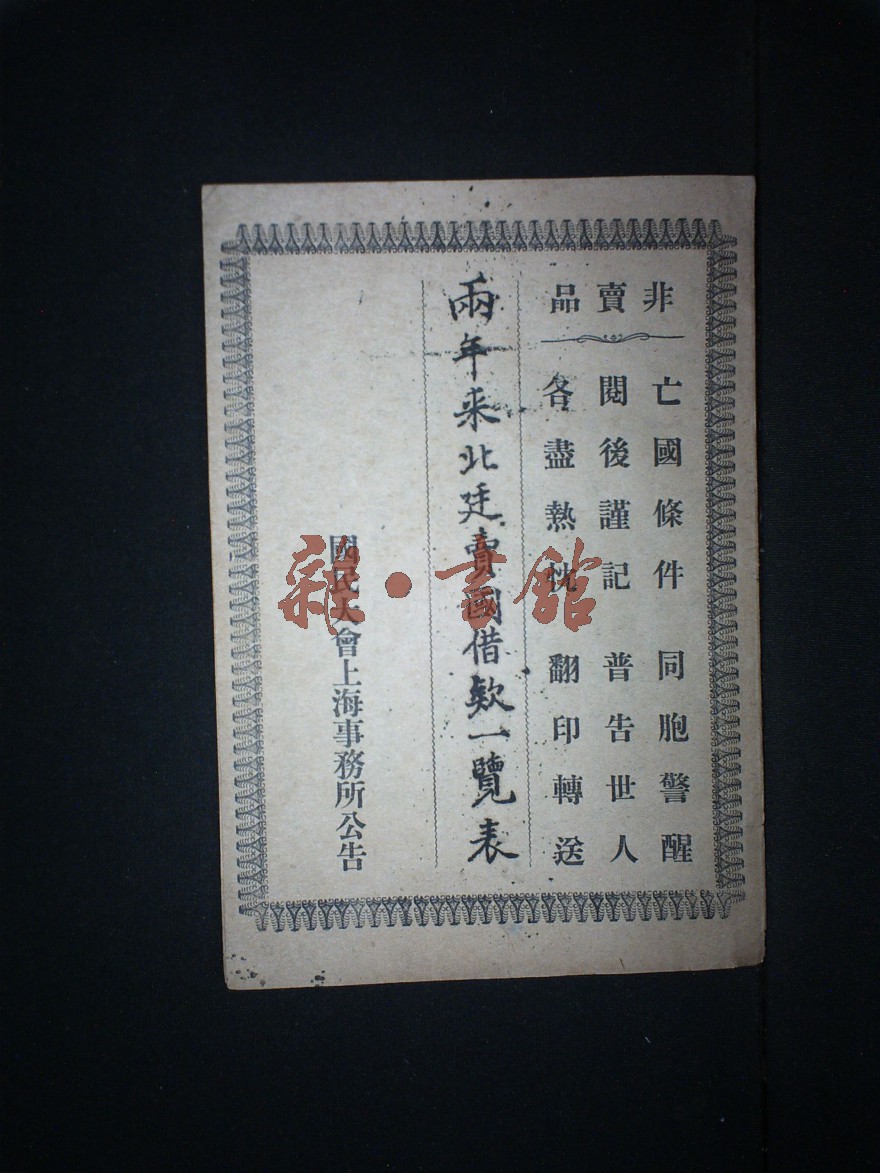 非賣品
亡國條件 同胞警醒
閱後謹記 普告世人
各盡熱忱 翻印轉送
兩年來北廷賣國借欵一覽表
國民大會上海事務所公告
雜·書館